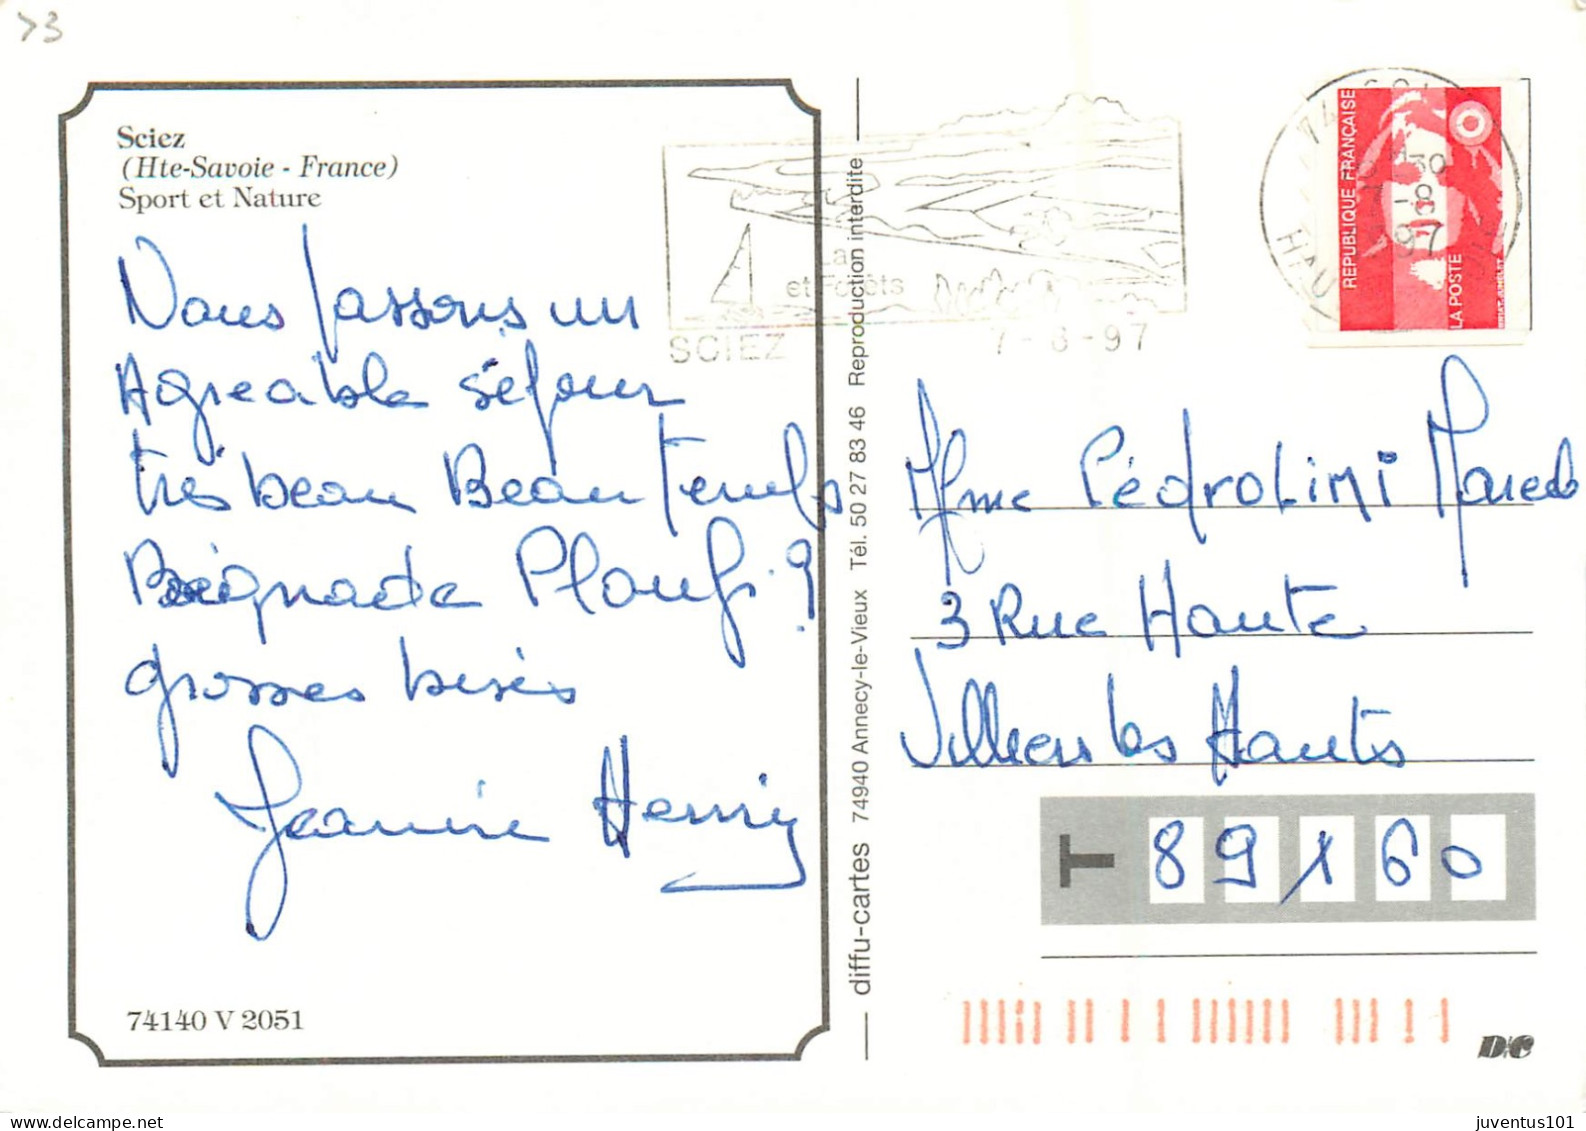 73
Sciez
(Hte-Savoie - France)
Sport et Nature
Nous passons un
Agreable séjour
très beau Beau Temps
Baignade Plouf. ?
grosses bises
Jeanine Henry
74140 V 2051
diffu-cartes 74940 Annecy-le-Vieux Tél. 50 27 83 46 Reproduction interdite
et Forêts
SCIEZ 7-8-97
74
30
7-8
97
REPUBLIQUE FRANÇAISE
LA POSTE
Mme Pédrolini
3 Rue Haute
Villiers les Hauts
T 89160
D/C
juventus101